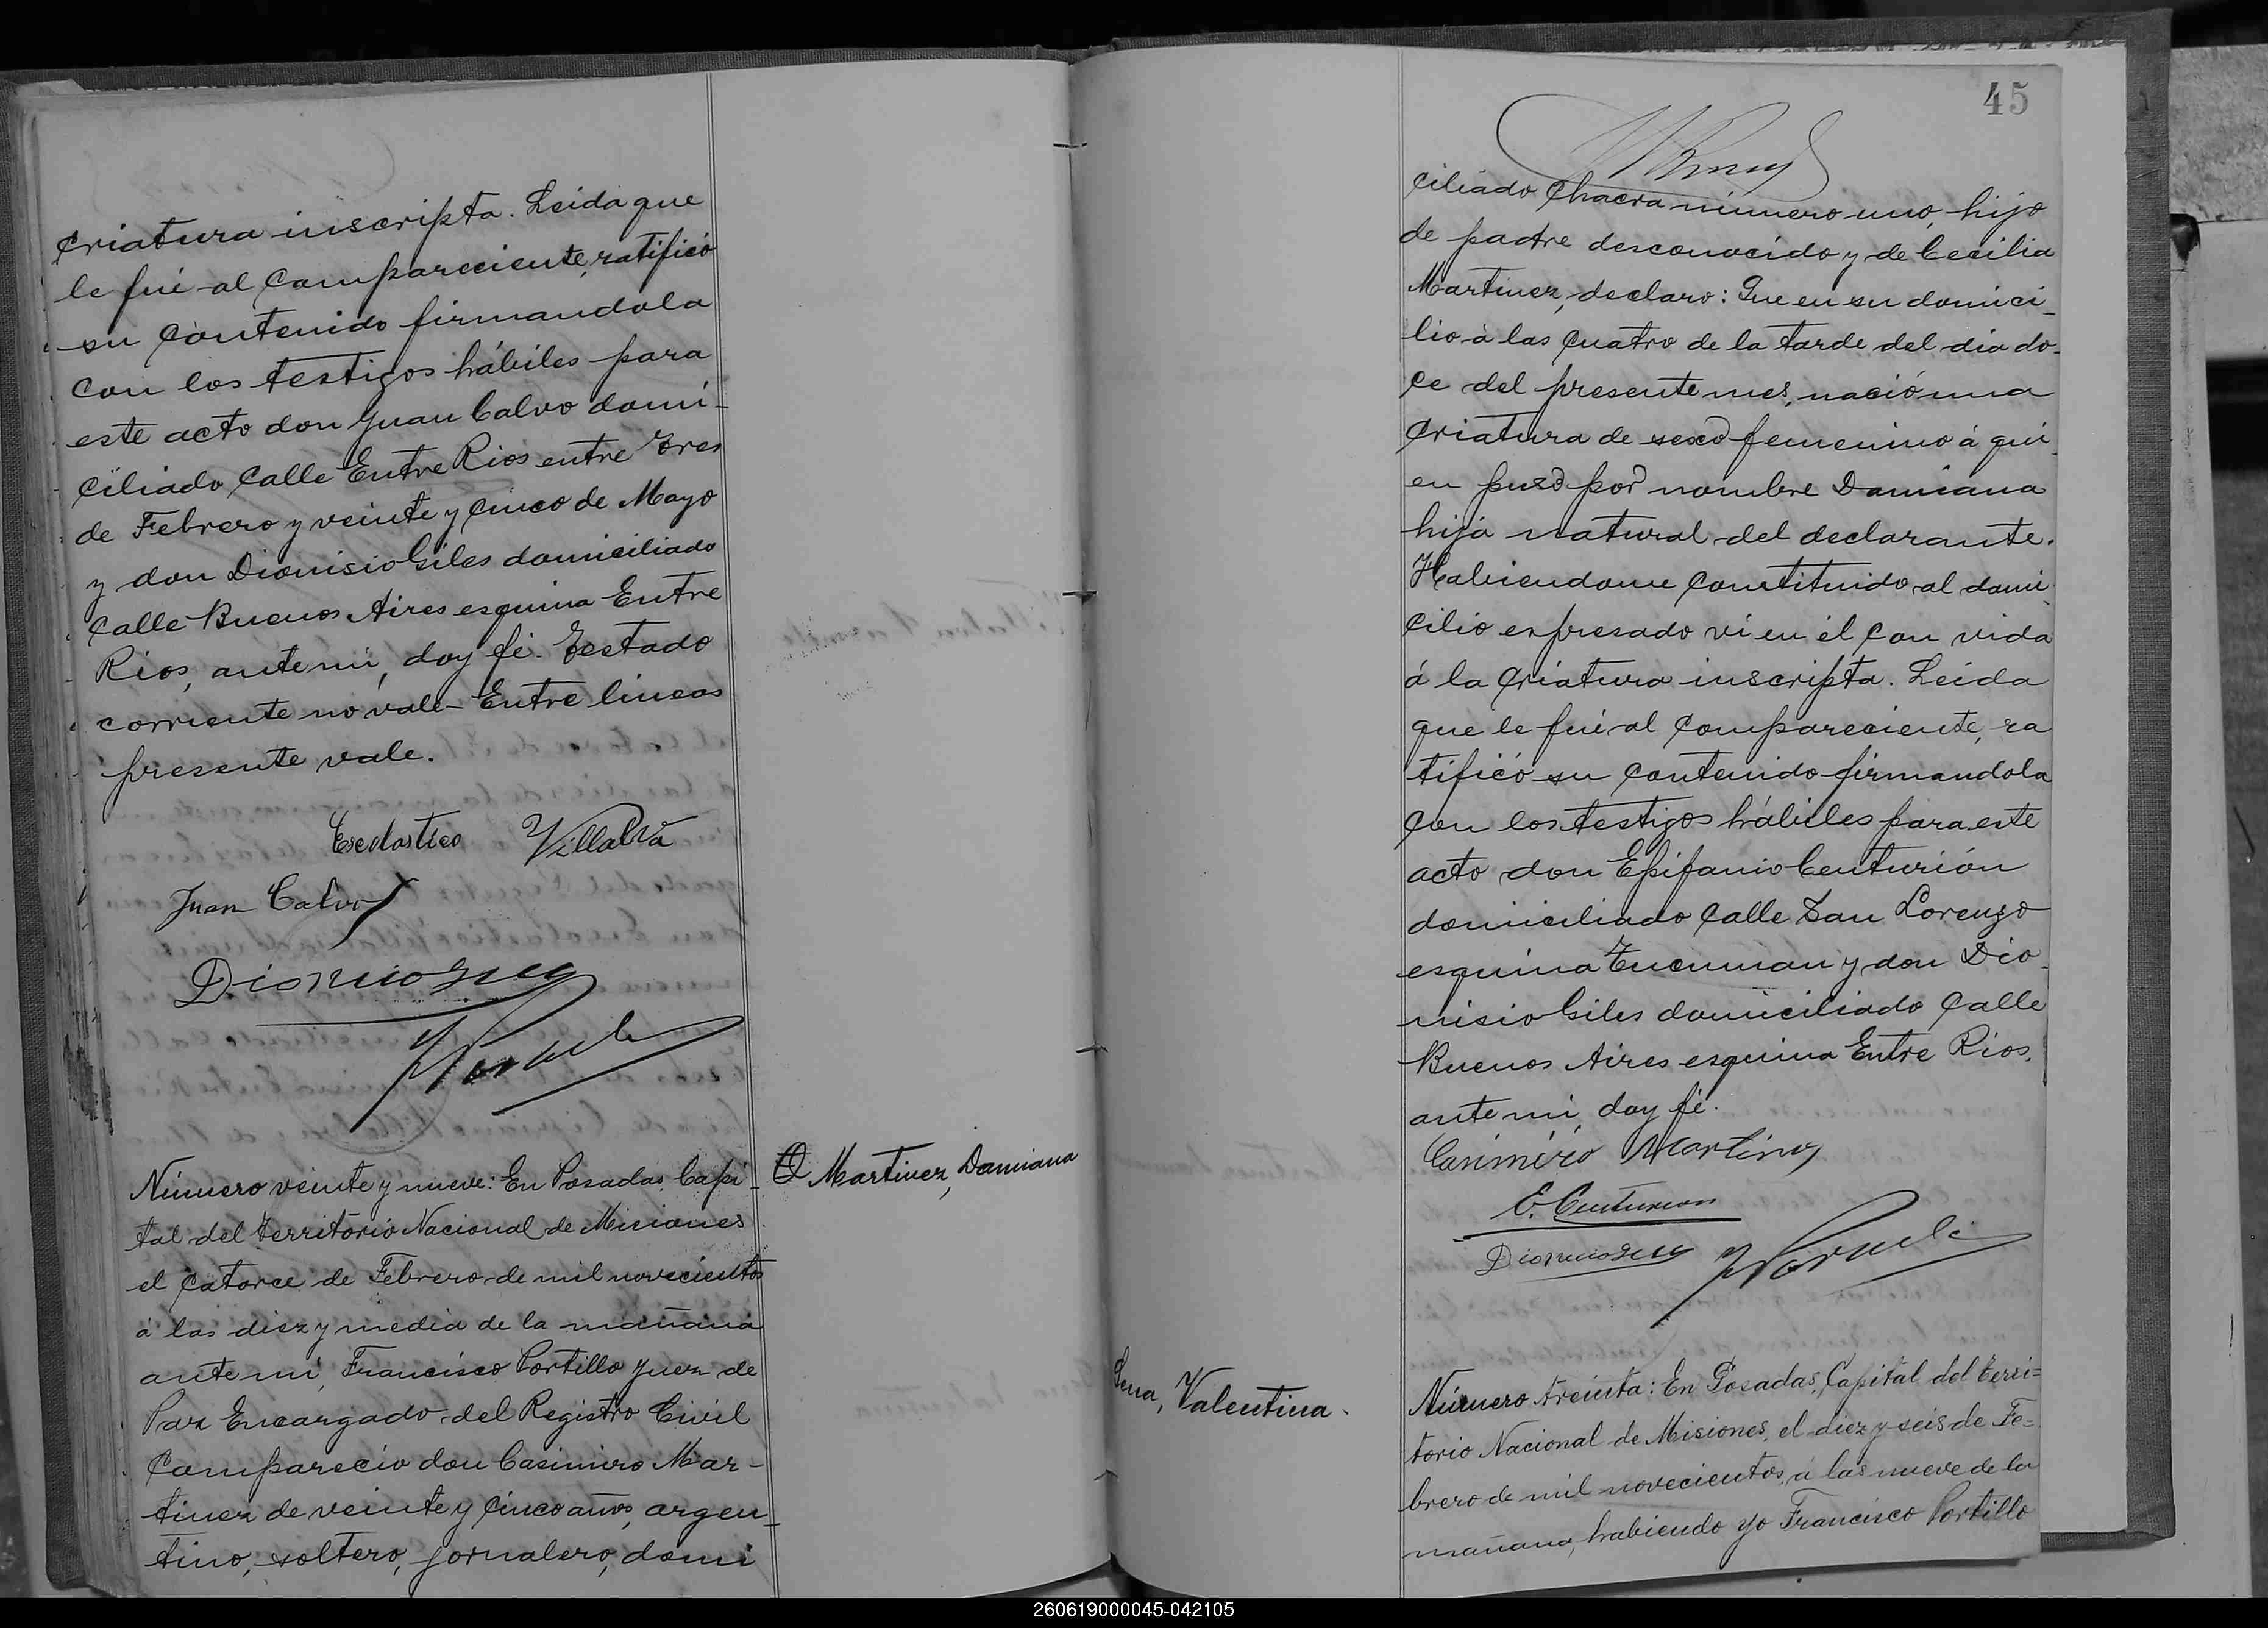 criatura inscripta. Leida que
le fué al compareciente, ratificó
su contenido firmandola
con los testigos hábiles para
este acto don Juan Calvo domi-
ciliado calle Entre Rios entre Tres
de Febrero y veinte y cinco de Mayo
y don Dionisio Giles domiciliado
calle Buenos Aires esquina Entre
Rios, ante mi, doy fé. Testado
corriente no vale - Entre lineas
presente vale.
Escolastico Villalva
Juan Calvo
Dionicio Giles
Número veinte y nueve: En Posadas, Capi-
tal del territorio Nacional de Misiones
el catorce de Febrero de mil novecientos
á las diez y media de la mañana
ante mi, Francisco Portillo Juez de
Paz Encargado del Registro Civil
compareció don Casimiro Mar-
tinez de veinte y cinco años, argen-
tino, soltero, jornalero, domi
Martinez, Damiana
45
ciliado chacra número uno, hijo
de padre desconocido y de Cecilia
Martinez, declaro: Que en su domici-
lio á las cuatro de la tarde del dia do-
ce del presente mes, nació una
criatura de sexo femenino á qui-
en puso por nombre Damiana
hija natural del declarante.
Habiendome constituido al domi-
cilio expresado vi en él con vida
á la criatura inscripta. Leida
que le fué al compareciente, ra
tificó su contenido firmandola
con los testigos hábiles para este
acto don Epifanio Centurión
domiciliado calle San Lorenzo
esquina Tucuman y don Dio-
nisio Giles domiciliado calle
Buenos Aires esquina Entre Rios,
ante mi, doy fé.
Casimiro Martinez
E. Centurion
Dionicio Giles
Sena, Valentina.
Número treinta: En Posadas, Capital del terri=
torio Nacional de Misiones, el diez y seis de Fe=
brero de mil novecientos, á las nueve de la
mañana, habiendo yo Francisco Portillo
260619000045-042105